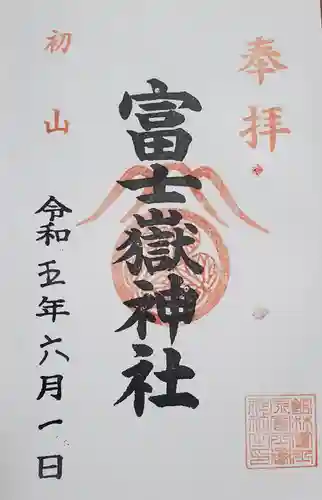 奉拝
富士嶽神社
初山
令和五年六月一日